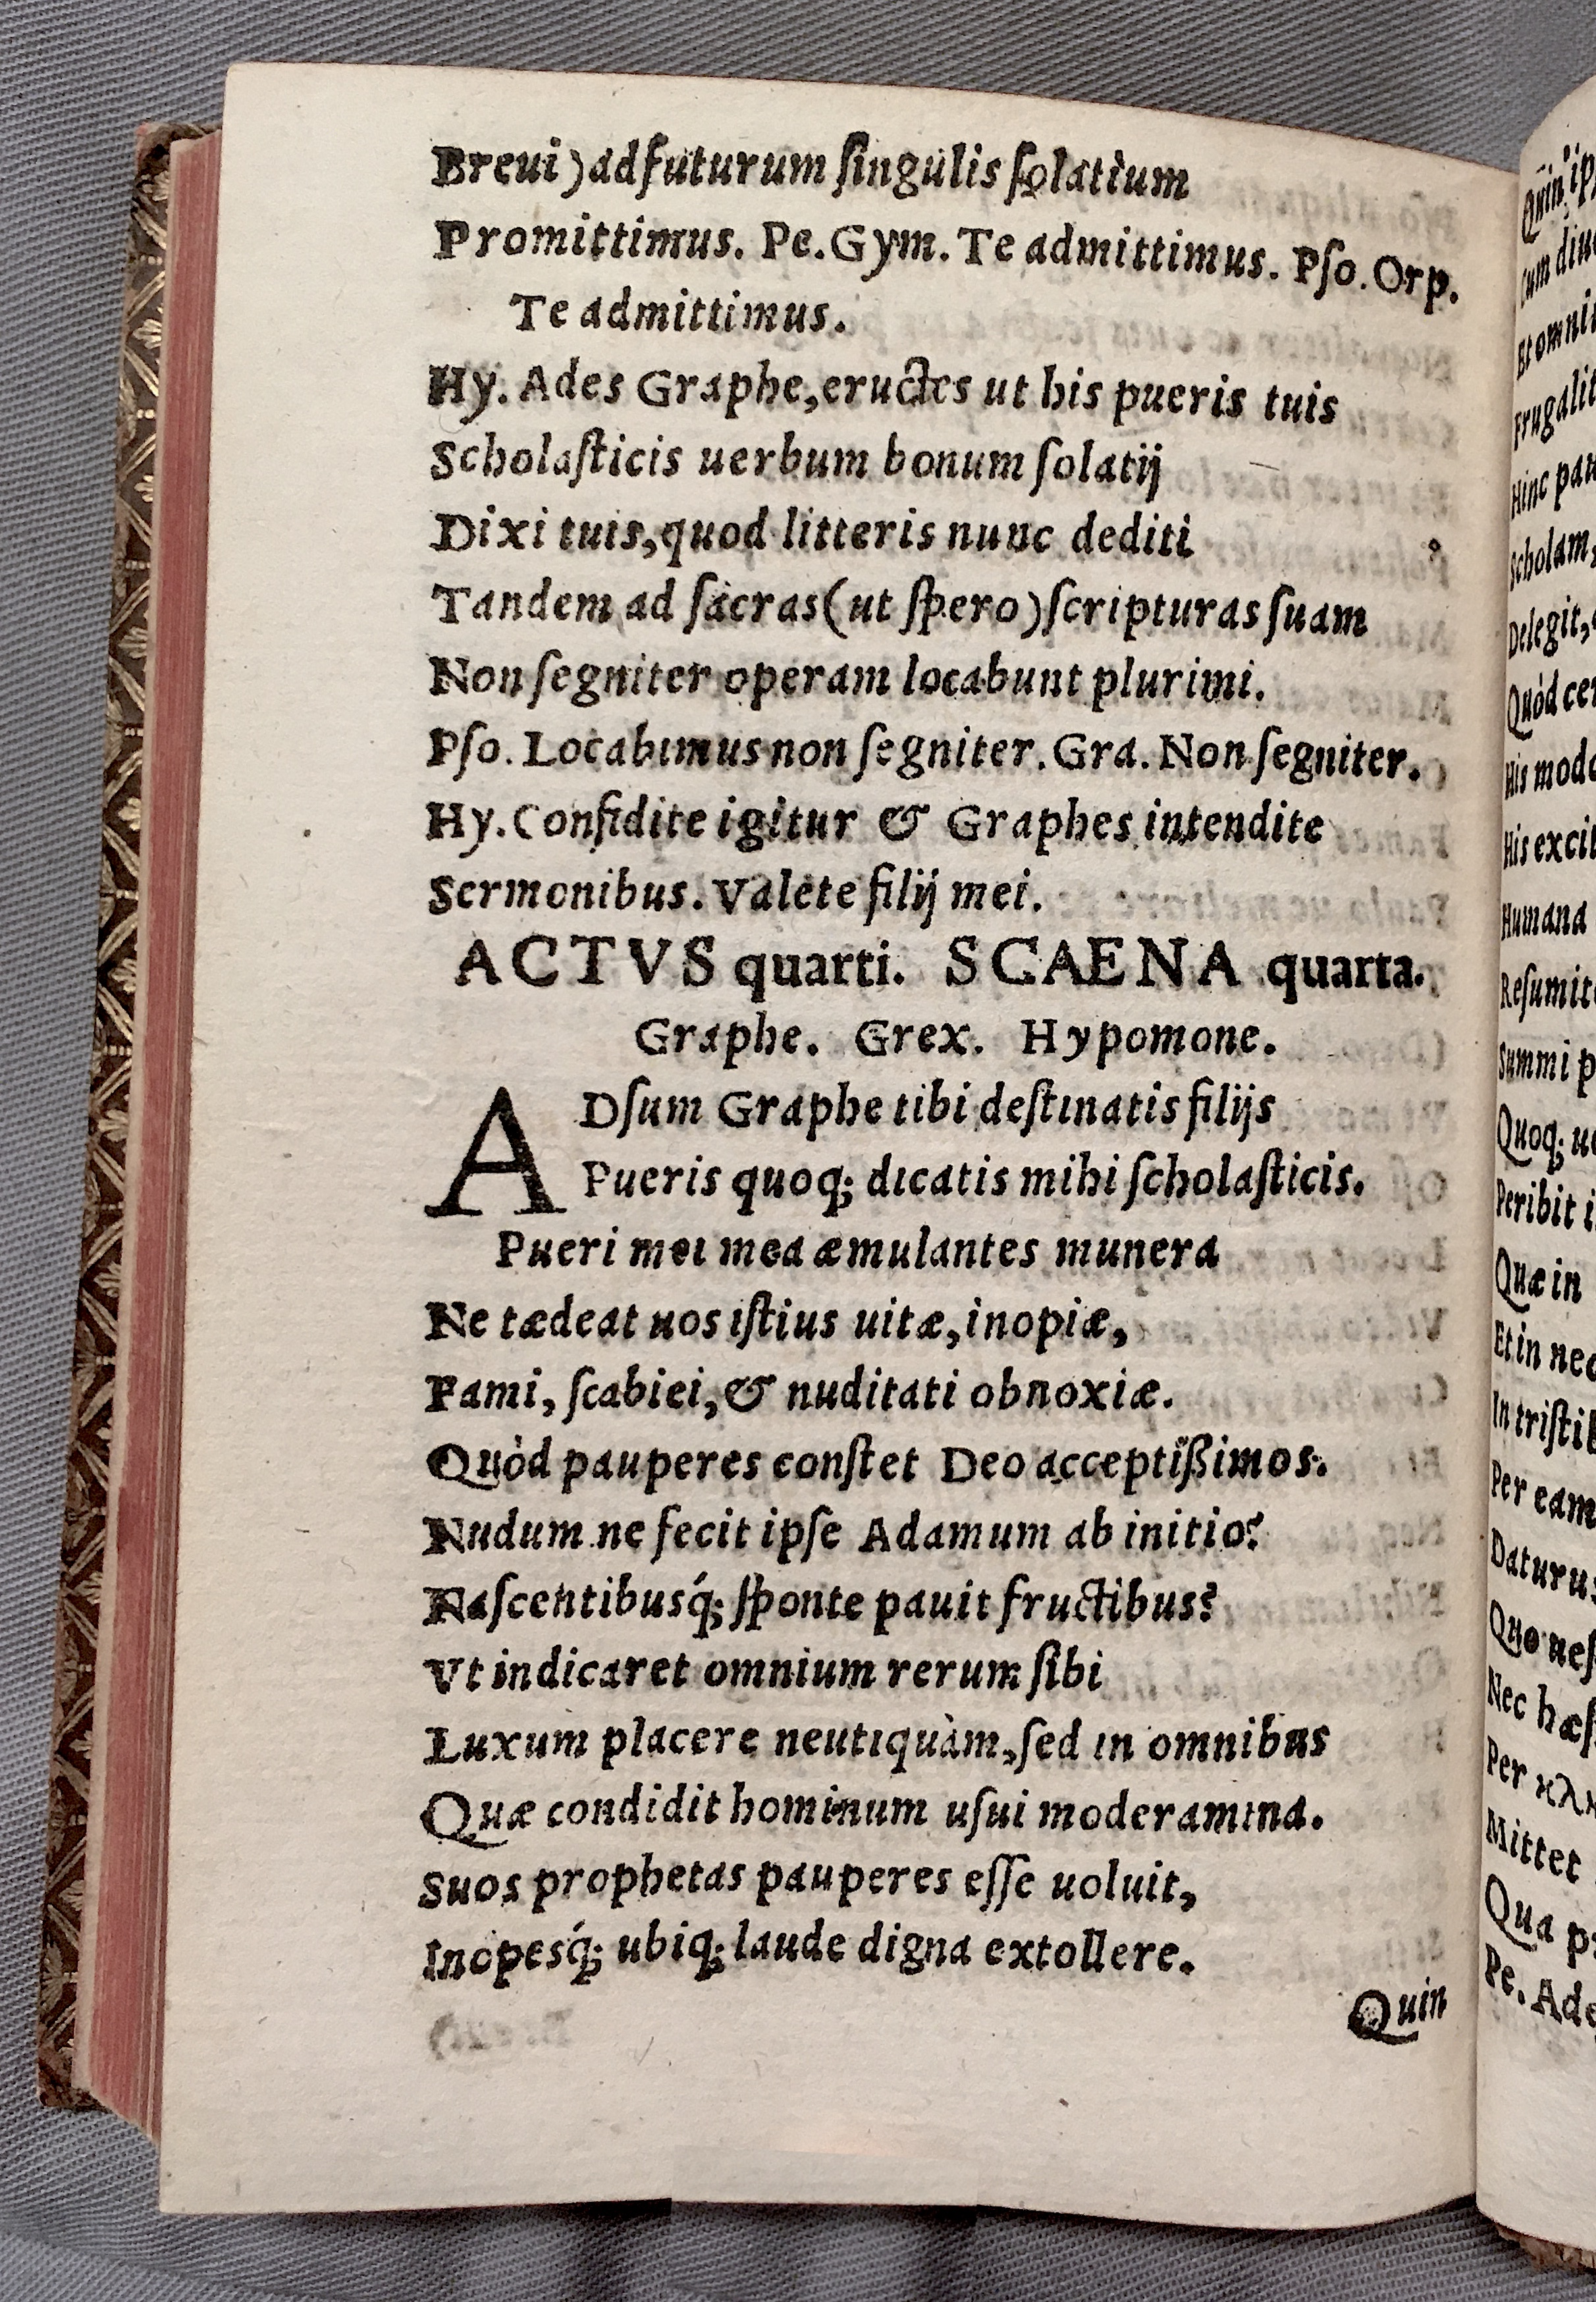 Breui) adfuturum ſingulis ſolatium
Promittimus. Pe. Gym. Te admittimus. Pſo. Orp.
Te admittimus.
Hy. Ades Graphe, eructes ut his pueris tuis
Scholaſticis uerbum bonum ſolatij
Dixi tuis, quod litteris nunc dediti
Tandem ad ſacras (ut ſpero) ſcripturas ſuam
Non ſegniter operam locabunt plurimi.
Pſo. Locabimus non ſegniter. Gra. Non ſegniter.
Hy. Confidite igitur & Graphes intendite
Sermonibus. Valete filij mei.
ACTVS quarti. SCAENA quarta.
Graphe. Grex. Hypomone.
ADſum Graphe tibi deſtinatis filijs
Pueris quoq; dicatis mihi ſcholaſticis.
Pueri mei mea æmulantes munera
Ne tædeat uos iſtius uitæ, inopiæ,
Fami, ſcabiei, & nuditati obnoxiæ.
Quòd pauperes conſtet Deo acceptißimos.
Nudum ne fecit ipſe Adamum ab initio?
Naſcentibusq́; ſponte pauit fructibus?
Vt indicaret omnium rerum ſibi
Luxum placere neutiquàm, ſed in omnibus
Quæ condidit hominum uſui moderamina.
Suos prophetas pauperes eſſe uoluit,
Inopesq́; ubiq; laude digna extollere.
Quin